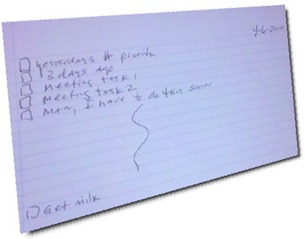 4-6-2010
Yesterdays # priority
3 days ago
Meeting task 1
Meeting task 2
Man, I have to do this soon
1) Get milk